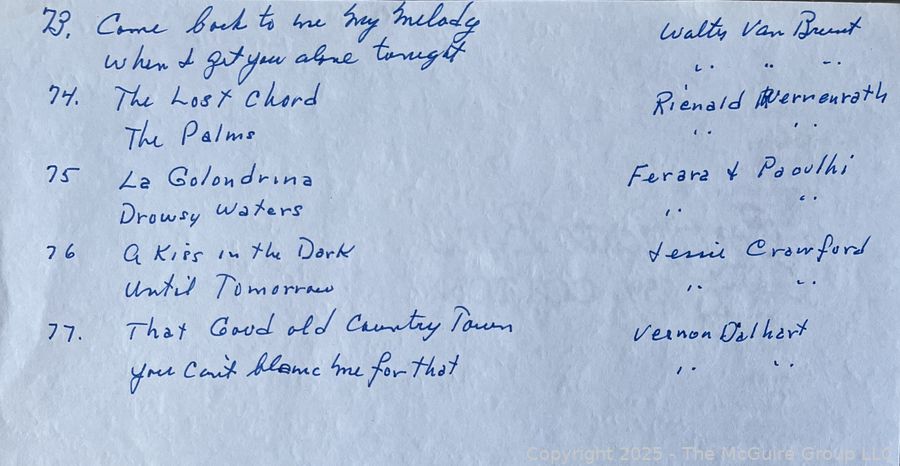 73. Come back to me my melody Walter Van Brunt
when I get you alone tonight " " "
74. The Lost Chord Rienald Werrenrath
The Palms " "
75 La Golondrina Ferara & Paoulhi
Drowsy Waters " "
76 A Kiss in the Dark Jessie Crawford
Until Tomorrow " "
77. That Good old Country Town Vernon Dalhart
you can't blame me for that " "
Copyright 2025 - The McGuire Group LLC